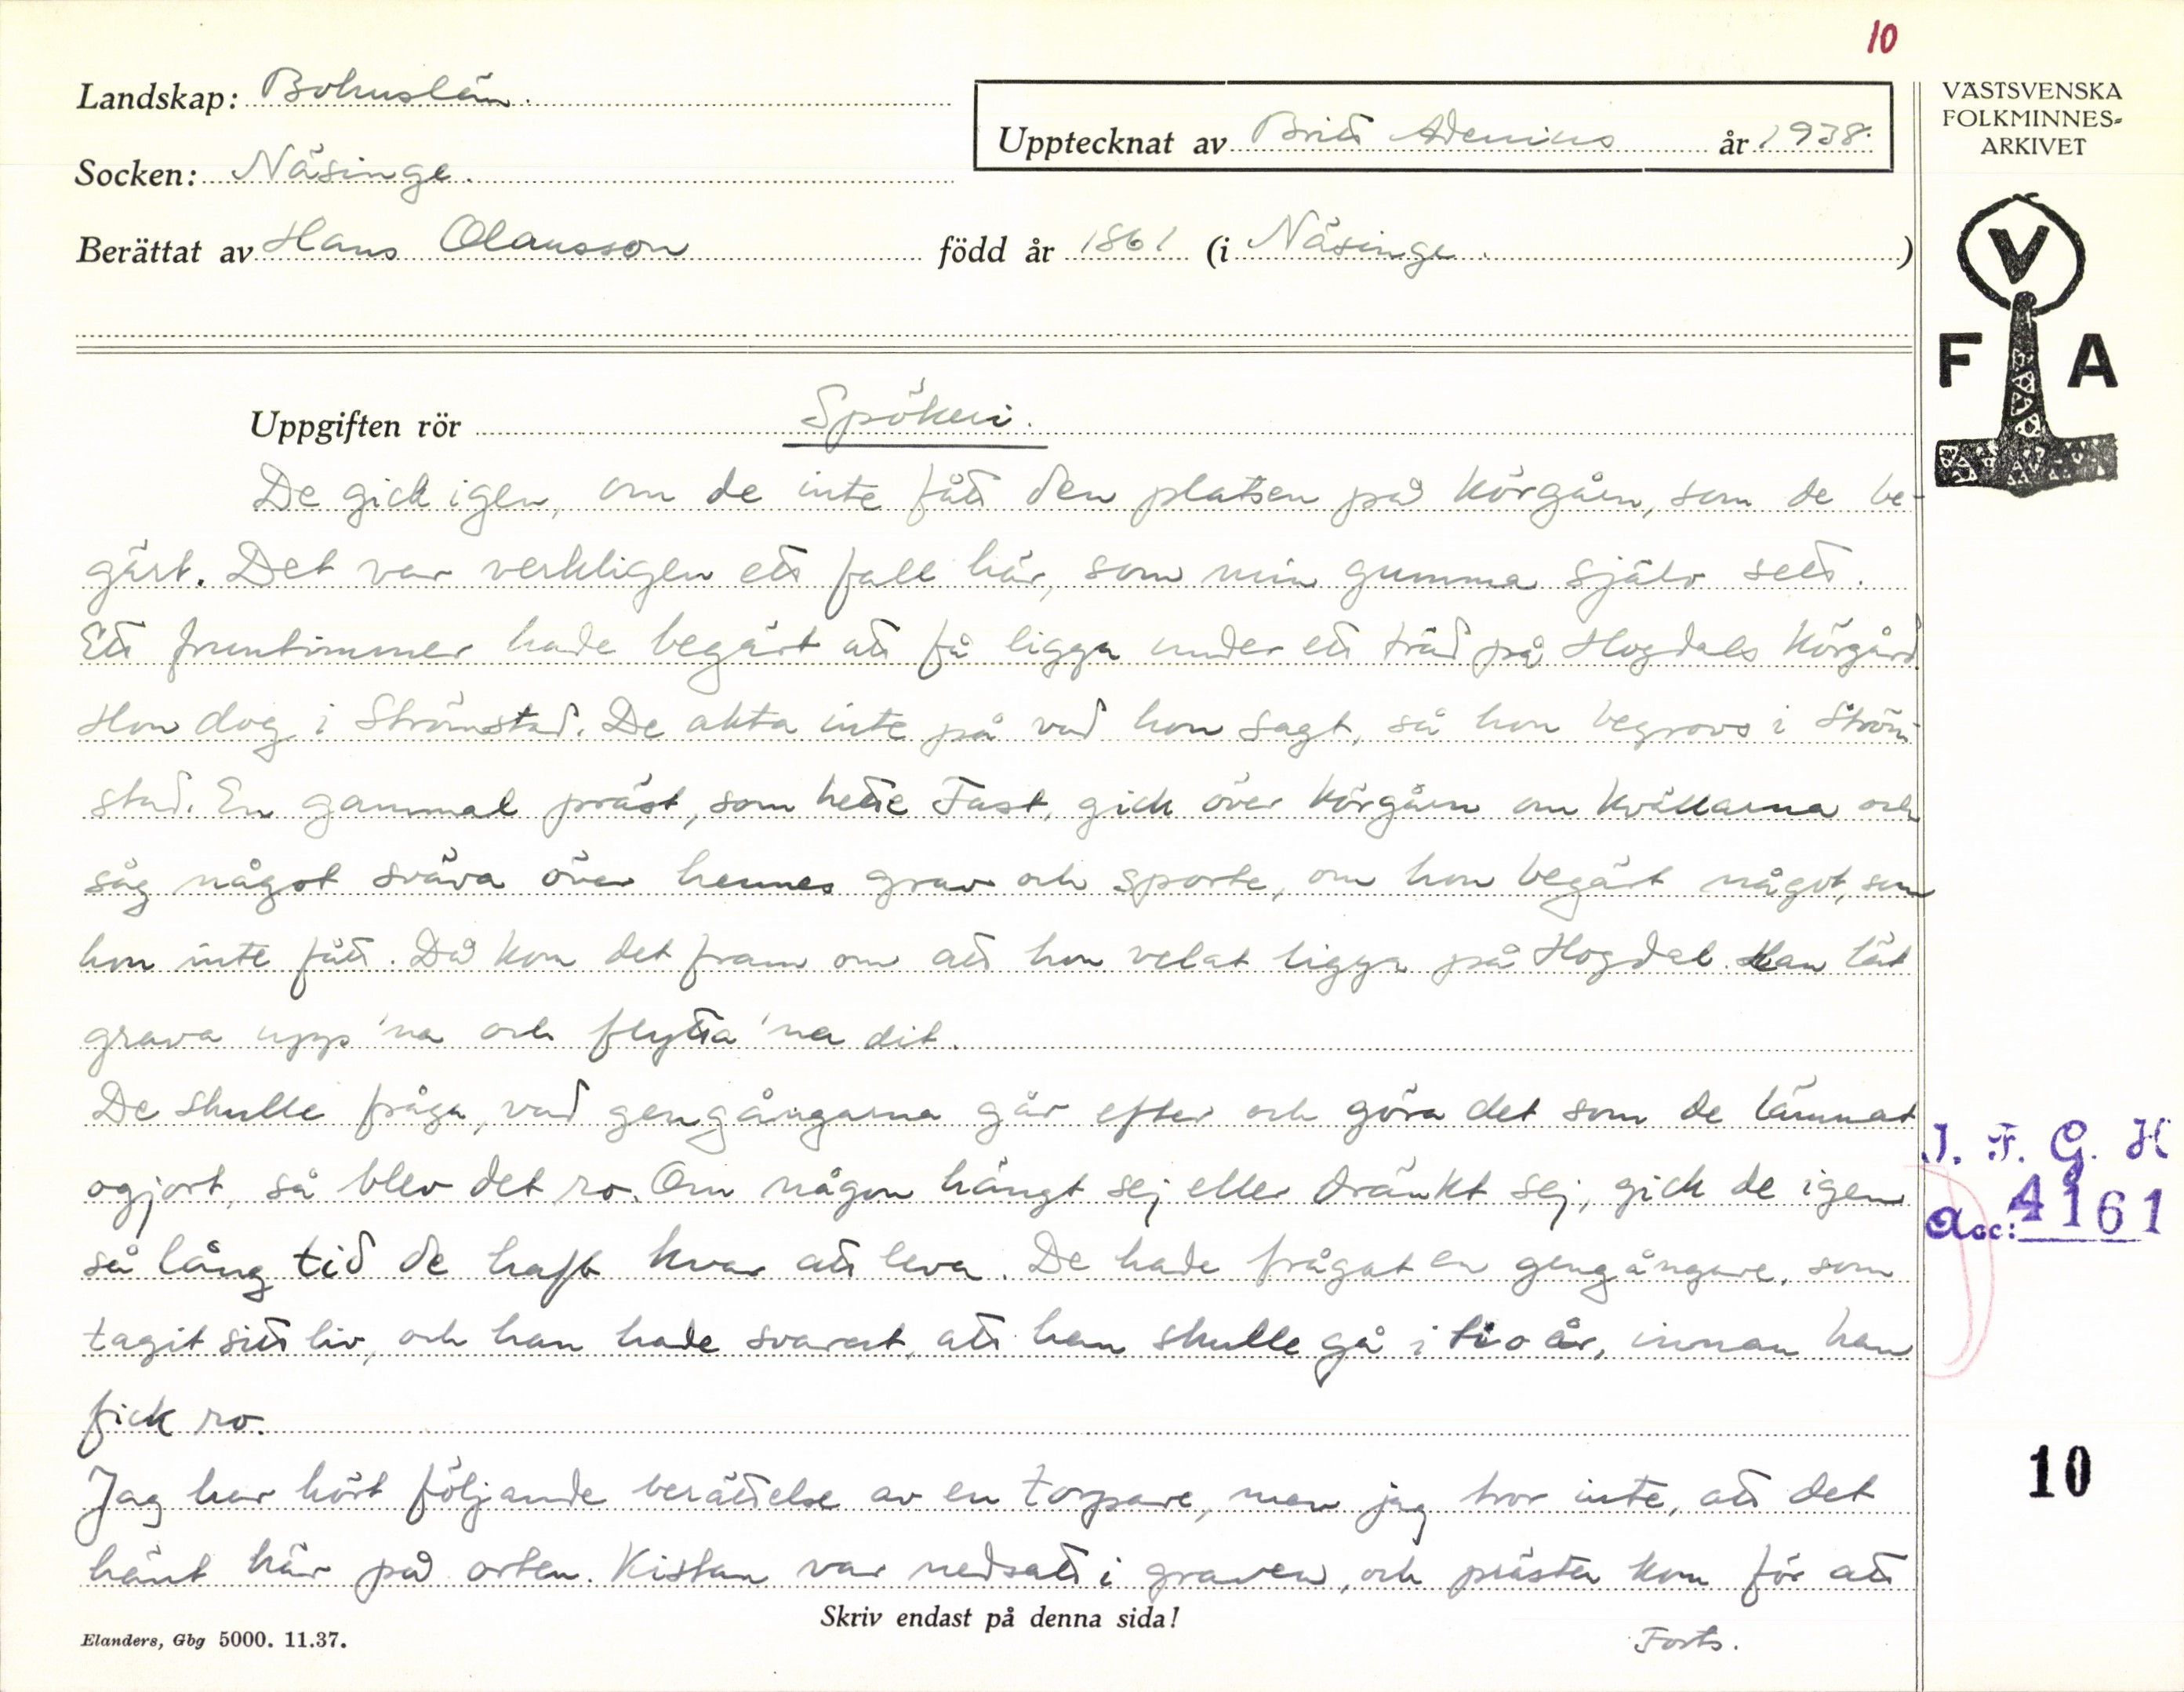 10
Landskap: Bohuslän.
Upptecknat av Britt Adenius år 1938.
Socken: Näsinge.
Berättat av Hans Olausson född år 1861 (i Näsinge.)
VÄSTSVENSKA
FOLKMINNES-
ARKIVET
V
F A
Uppgiften rör Spökeri.
De gick igen, om de inte fått den platsen på körgåen, som de be-
gärt. Det var verkligen ett fall här, som min gumma själv sett.
Ett fruntimmer hade begärt att få ligga under ett träd på Hogdals körgård.
Hon dog i Strömstad. De akta inte på vad hon sagt, så hon begrovs i Ström-
stad. En gammal präst, som hette Fast, gick över körgåen om kvällarna och
såg något sväva över hennes grav och sporte, om hon begärt något, som
hon inte fått. Då kom det fram om att hon velat ligga på Hogdal. Han lät
grava upp 'na och flytta 'na dit.
De skulle fråga, vad gengångarna går efter och göra det som de lämnat
ogjort, så blev det ro. Om någon hängt sej eller dränkt sej, gick de igen
så lång tid de haft kvar att leva. De hade frågat en gengångare, som
tagit sitt liv, och han hade svarat, att han skulle gå i tio år, innan han
fick ro.
Jag har hört följande berättelse av en torpare, men jag tror inte, att det
hänt här på orten. Kistan var nedsatt i graven, och prästen kom för att
I. F. G. H
Acc: 4161
10
Skriv endast på denna sida!
Elanders, Gbg 5000. 11.37.
Forts.